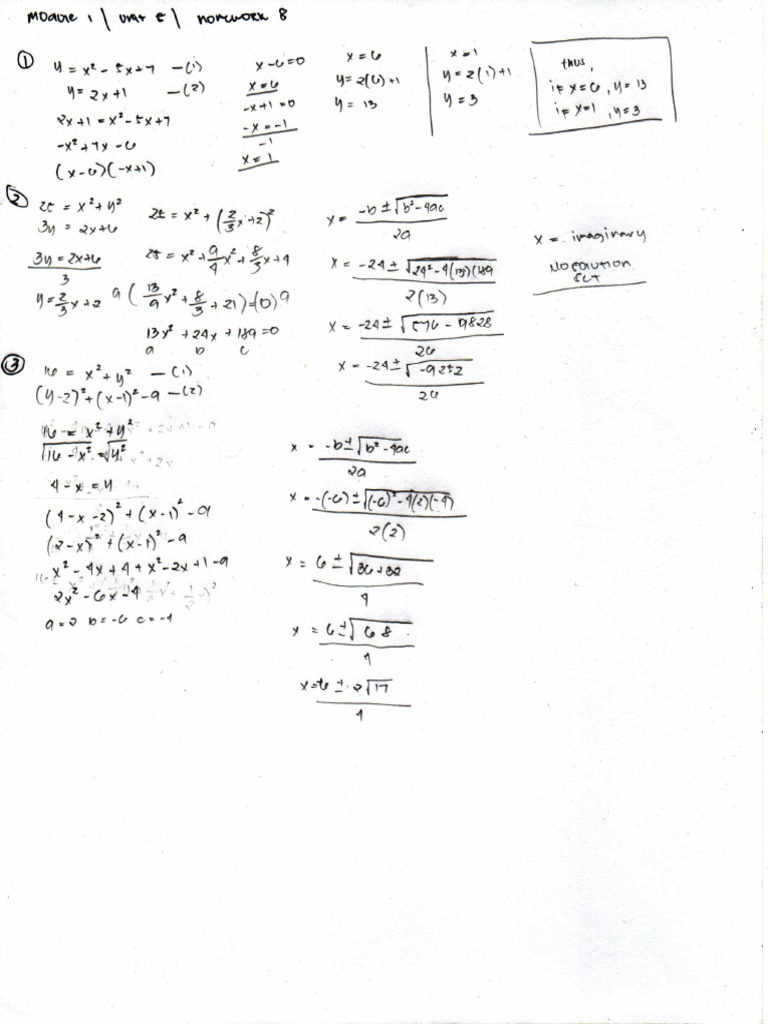 Module 1 / Unit 5 / Homework 8
①
y = x² - 5x+7 —(1)
y = 2x+1 —(2)
2x+1 = x² - 5x+7
-x² + 7x - 6
(x-6)(-x+1)
x-6=0
x=6
-x+1=0
-x=-1
-1
x=1
x=6
y=2(6)+1
y=13
x=1
y=2(1)+1
y=3
thus,
if x=6, y=13
if x=1, y=3
②
25 = x² + y²
3y = 2x+6
3y=2x+6
3
y=2/3x+2
25 = x² + (2/3x+2)²
25 = x² + 9/4x² + 8/3x+4
9(13/9x² + 8/3 + 21)=(0)9
13x² + 24x + 189=0
a b c
x = -b ± √b²-4ac
2a
x = -24 ± √24²-4(13)(189
2(13)
x = -24 ± √576 - 9828
26
x = -24 ± √-9252
26
x = imaginary
No solution
set
③
16 = x² + y² —(1)
(y-2)² + (x-1)² - 9 —(2)
16 = x² + y²
√16 - x² = √y²
4 - x = y
(4-x-2)² + (x-1)² - 9
(2-x)² + (x-1)² - 9
x² - 4x + 4 + x² - 2x + 1 - 9
2x² - 6x - 4
a=2 b=-6 c=-4
x = -b ± √b²-4ac
2a
x = -(-6) ± √(-6)²-4(2)(-4)
2(2)
x = 6 ± √36+32
4
x = 6 ± √68
4
x = 6 ± 2√17
4